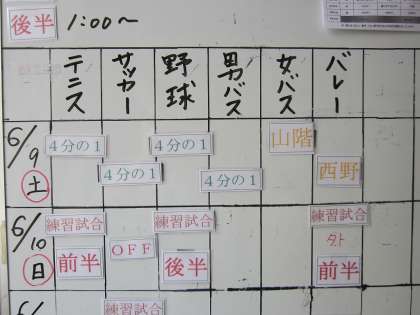 後半 1:00～
テニス サッカー 野球 男バス 女バス バレー
6/9 土
4分の1 4分の1 山階
4分の1 4分の1 西野
6/10 日
練習試合 練習試合 練習試合
OFF 外
前半 後半 前半
6/
練習試合